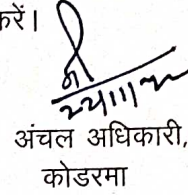 करें।
अंचल अधिकारी,
कोडरमा